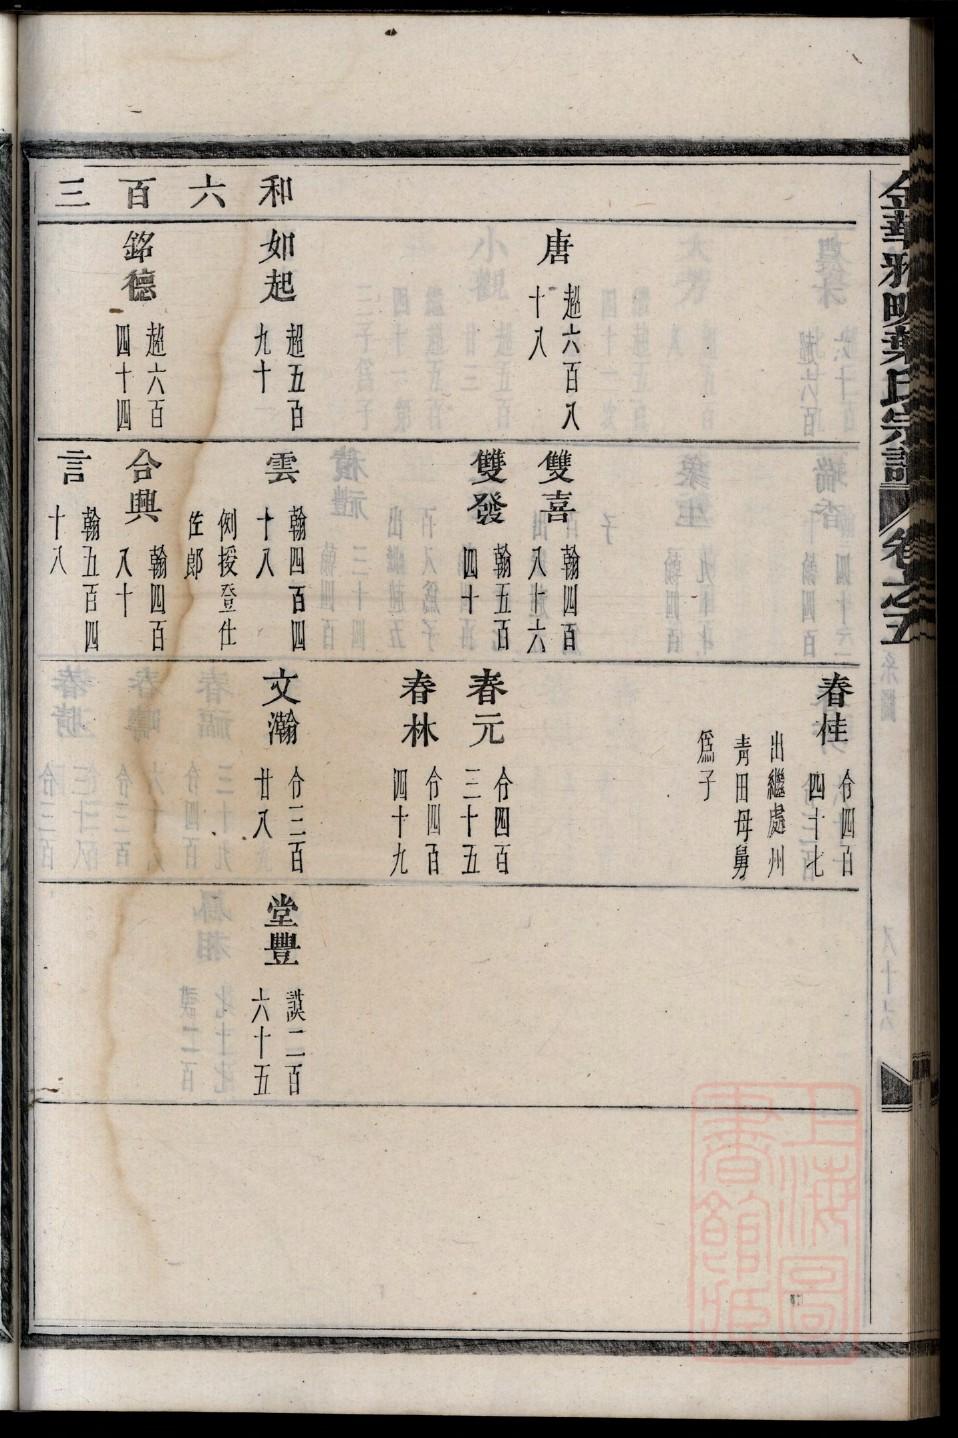 金華雅畈葉氏宗譜
卷之五
和六百三
唐
超六百八
十八
如起
超五百
九十
銘德
超六百
四十四
雙喜
翰四百
八十六
雙發
翰五百
四十
雲
翰四百四
十八
例授登仕
佐郎
合興
翰四百
八十
言
翰五百四
十八
春桂
令四百
四十七
出繼處州
靑田母舅
爲子
春元
令四百
三十五
春林
令四百
四十九
文瀚
令三百
廿八
堂豐
謨二百
六十五
上海圖
書館藏